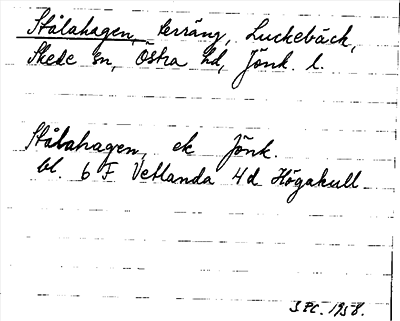 Stålahagen, terräng, Luckebäck,
Skede sn, Östra hd, Jönk. l.
Stålahagen, ek Jönk.
bl. 6 F Vetlanda 4d Högakull
1958.